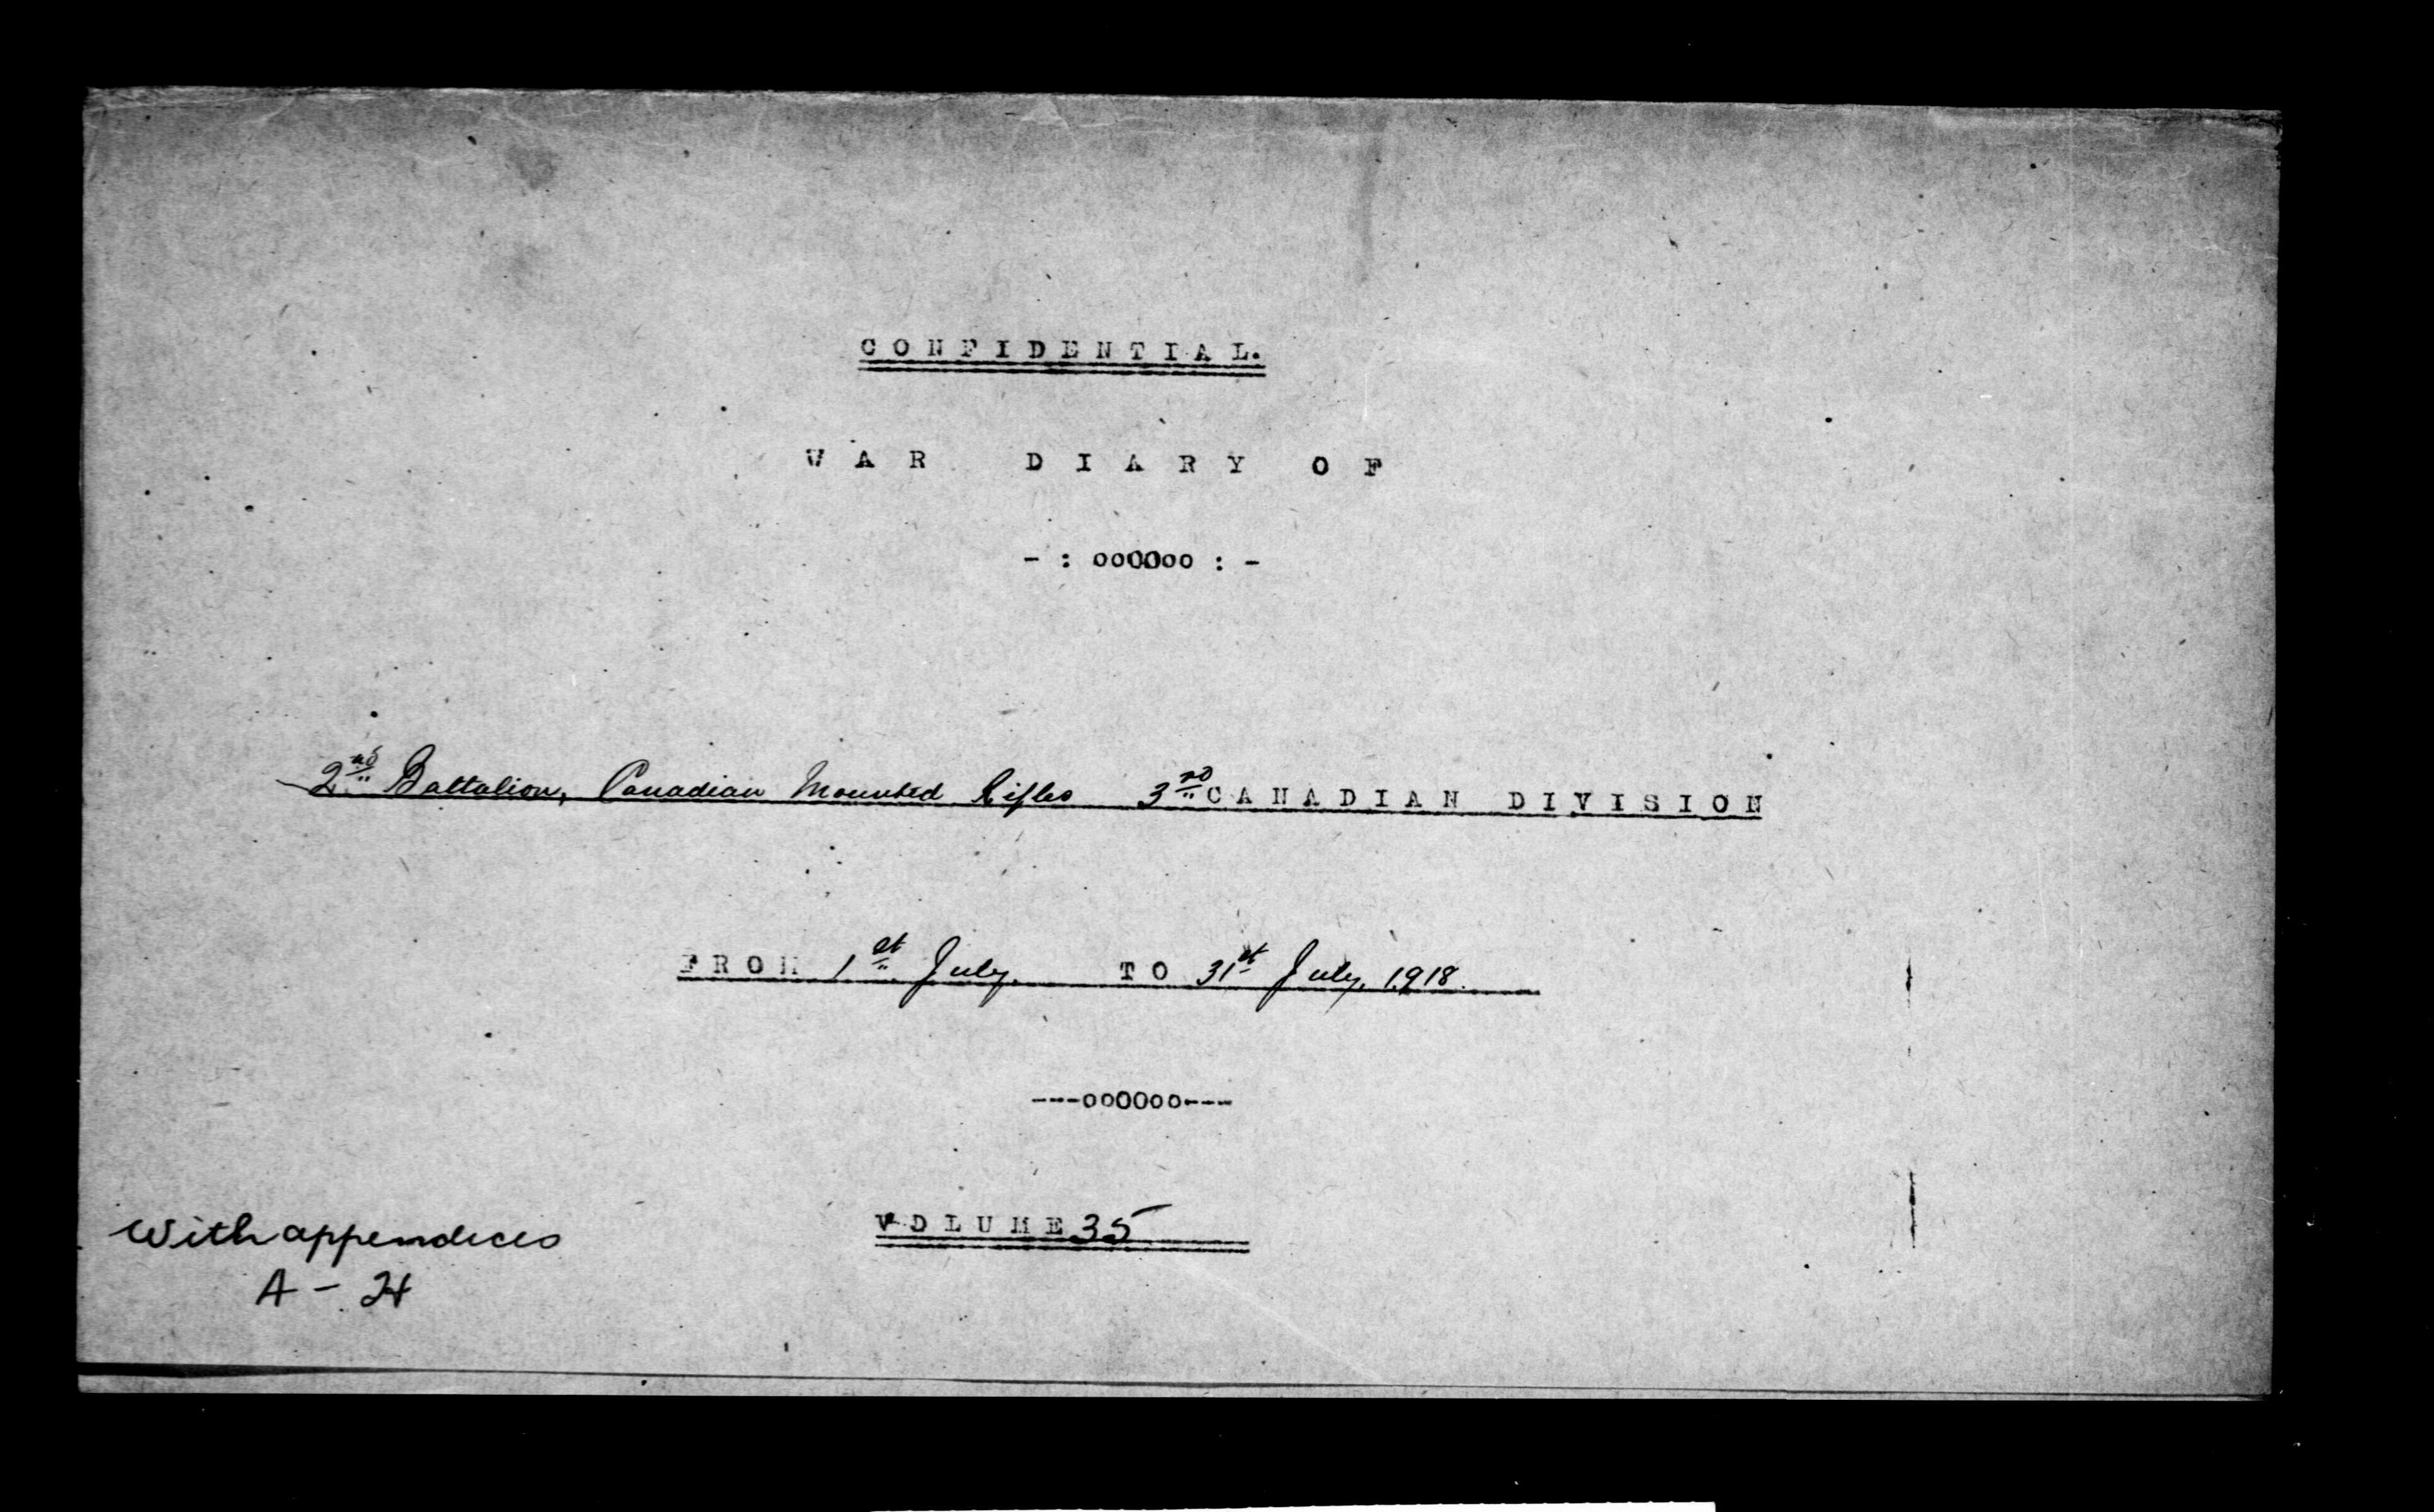 CONFIDENTIAL.
WAR DIARY OF
- : ooOOoo : -
2nd Battalion, Canadian Mounted Rifles 3rd CANADIAN DIVISION
FROM 1st July. TO 31st July, 1918.
---ooOOoo---
VOLUME 35
With appendices
A - H